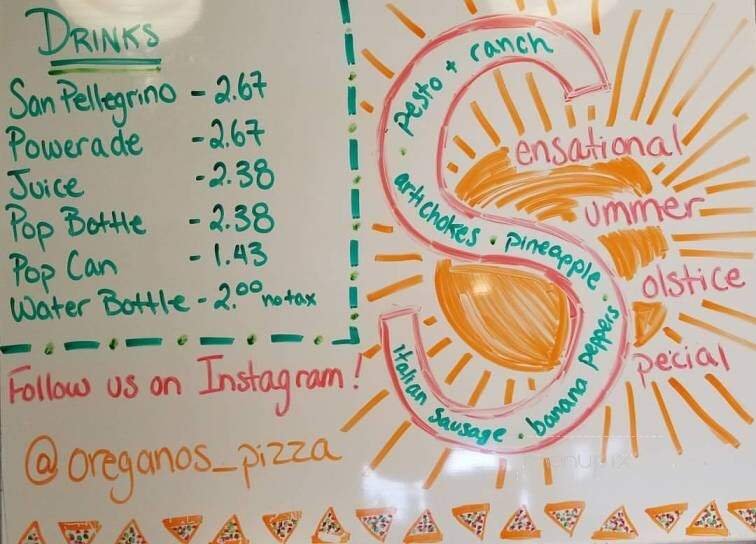 DRINKS
San Pellegrino - 2.67
Powerade - 2.67
Juice - 2.38
Pop Bottle - 2.38
Pop Can - 1.43
Water Bottle - 2.00 no tax
Follow us on Instagram!
@oreganos_pizza
S
pesto + ranch
artichokes • pineapple •
italian sausage • banana peppers
ensational
ummer
olstice
pecial